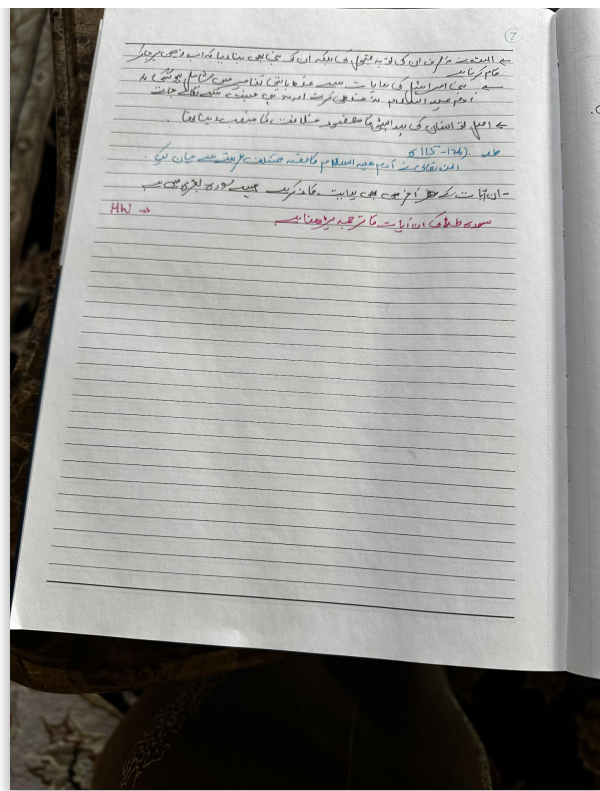 2
← اللہ نے نہ صرف ان کی توبہ قبول کی بلکہ ان کو نبی بھی بنا دیا کہ اب زمین پر جا کر
کام کرنا ہے
← بنی اسرائیل کی روایات سے غلط باتیں تفاسیر میں شامل ہو گئی ہیں
آدم علیہ السلام نہ غلطی کرتے اور نہ ہی جنت سے نکالے جاتے
← اصل تو انسان کی پیدائش کا مقصد خلافت کا منصب دینا تھا۔
طہ (115-126)
اللہ تعالیٰ نے آدم علیہ السلام کا قصہ مختلف طریقے سے بیان کیا۔
- ان آیات کے آخر میں بھی ہدایت کا ذکر ہے جیسے سورہ بقرہ میں ہے
HW → سورہ طہ کی ان آیات کا ترجمہ پڑھنا ہے